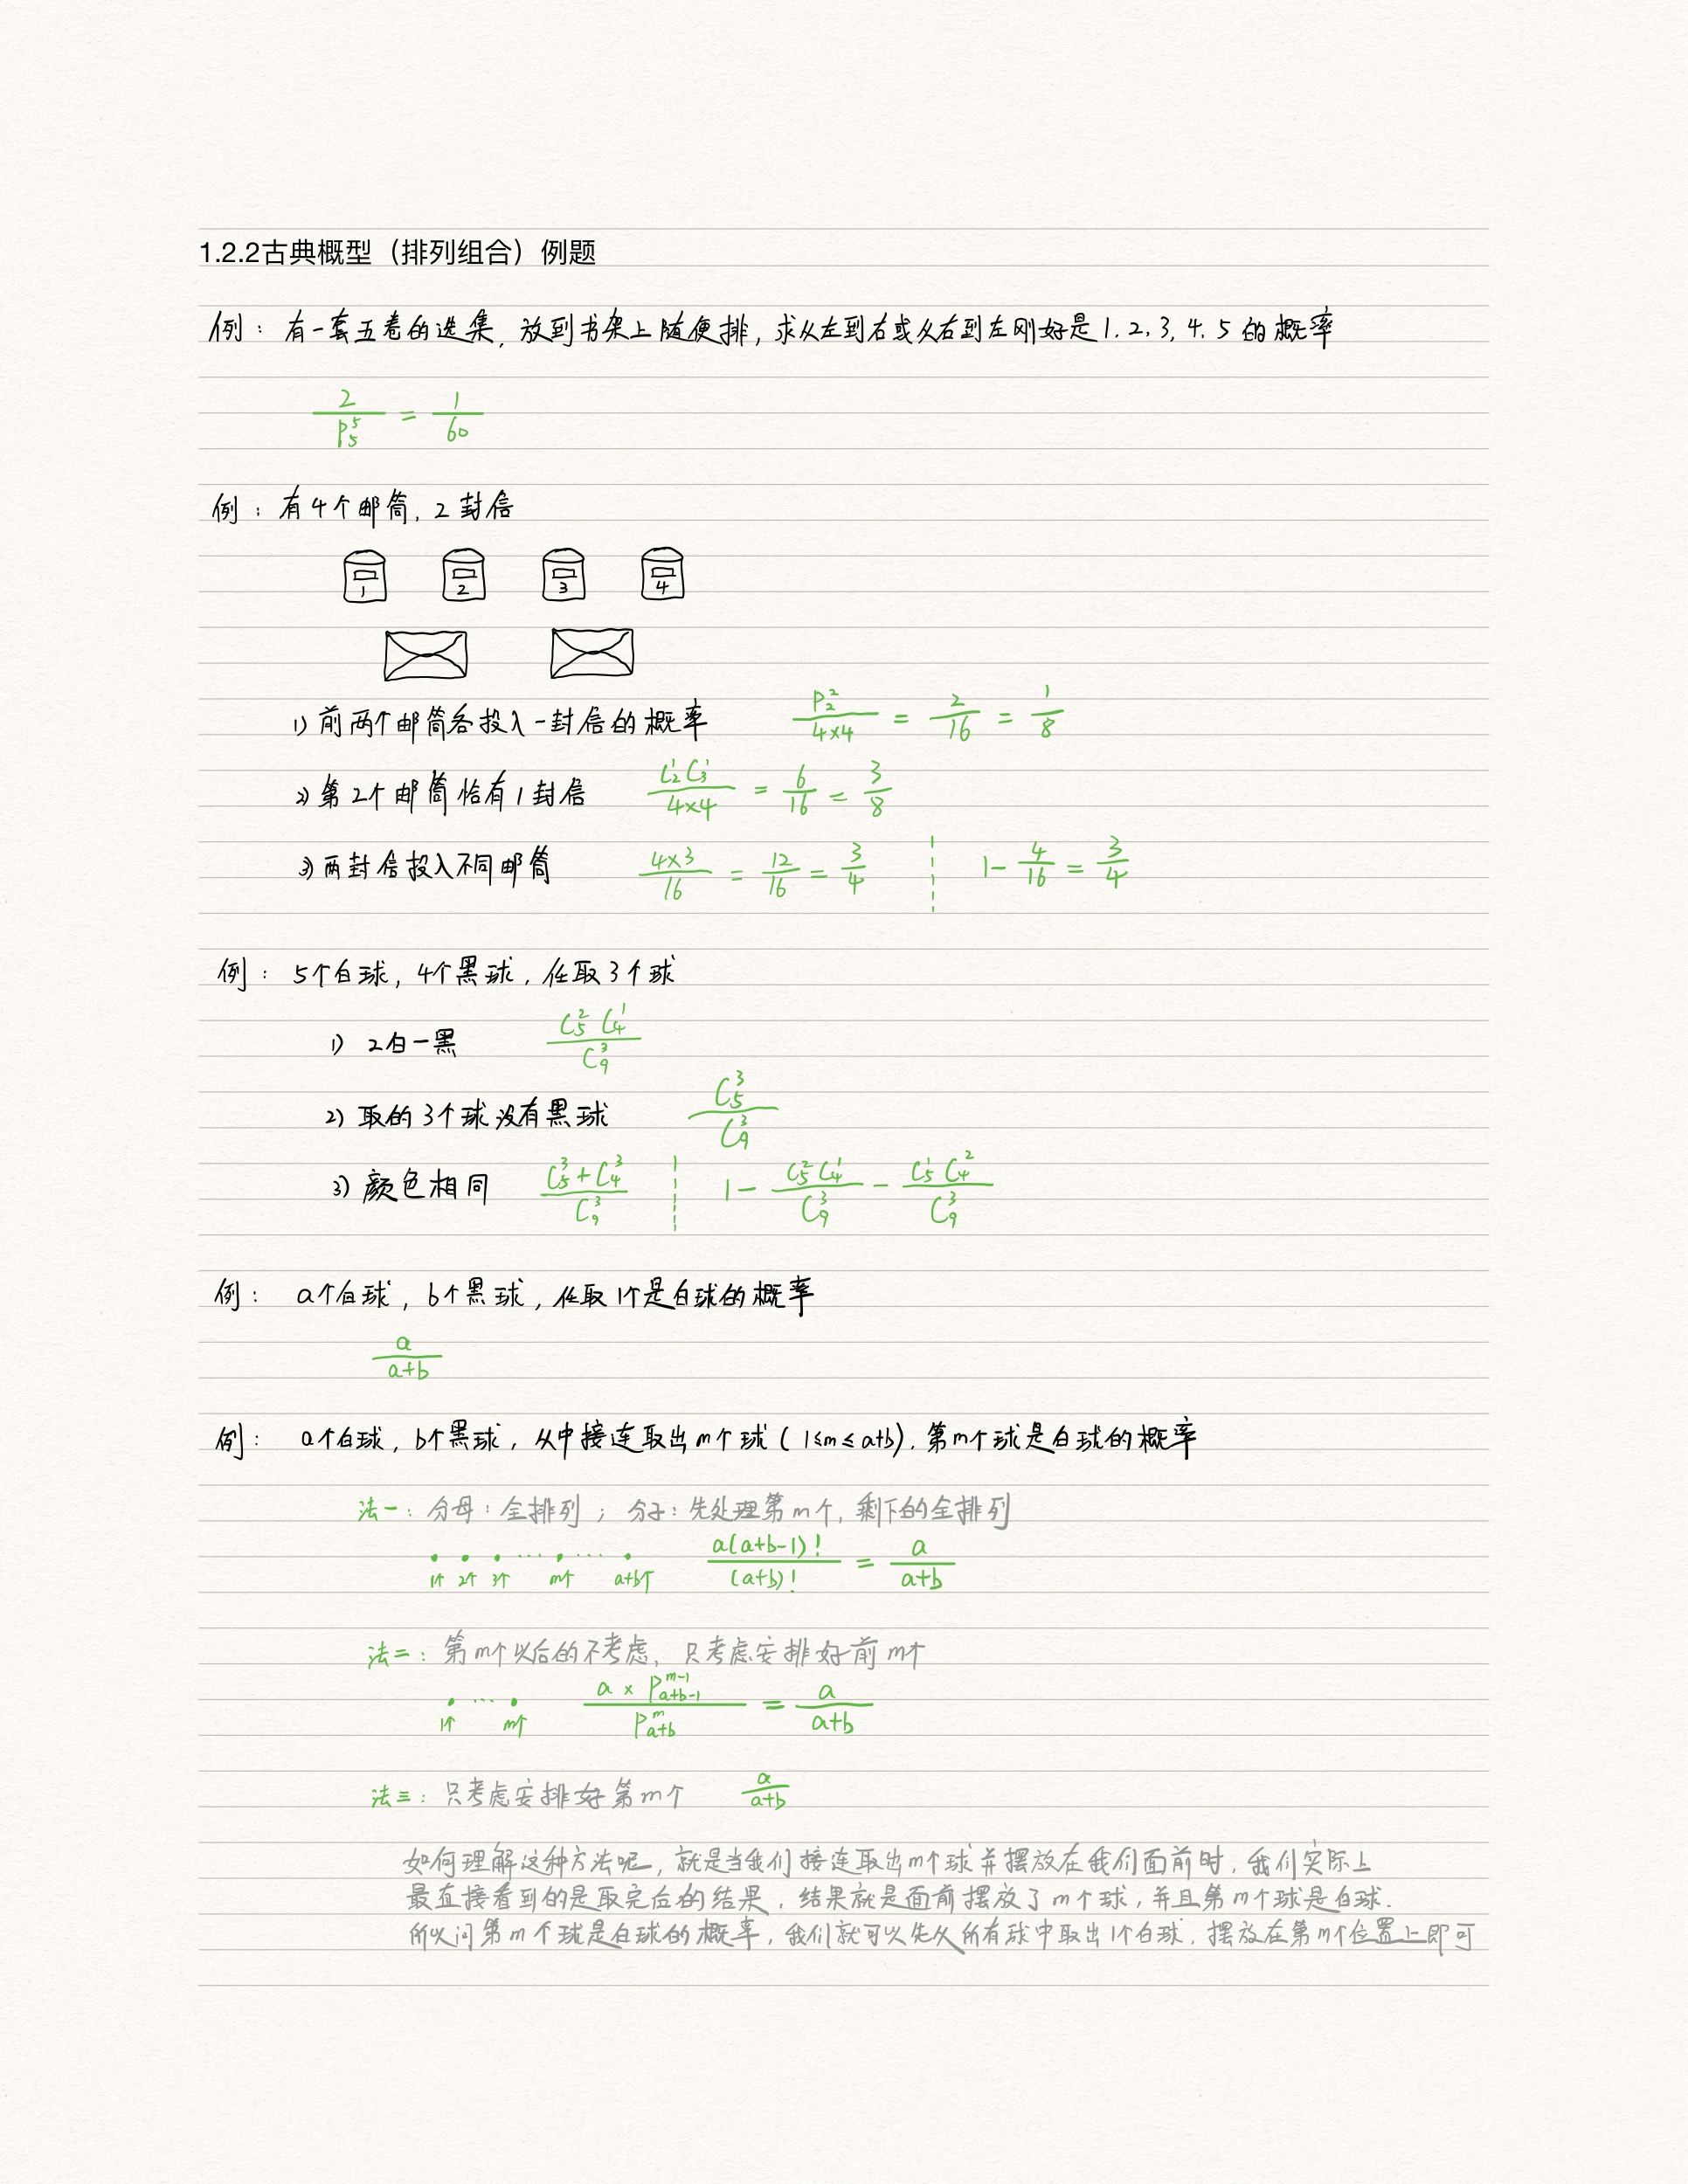 1.2.2古典概型（排列组合）例题
例：有一套五卷的选集，放到书架上随便排，求从左到右或从右到左刚好是1.2.3.4.5的概率
2/P₅⁵ = 1/60
例：有4个邮筒，2封信
1 2 3 4
1) 前两个邮筒各投入一封信的概率 P₂²/(4×4) = 2/16 = 1/8
2) 第2个邮筒恰有1封信 C₂¹C₃¹/(4×4) = 6/16 = 3/8
3) 两封信投入不同邮筒 (4×3)/16 = 12/16 = 3/4 1-4/16 = 3/4
例：5个白球，4个黑球，任取3个球
1) 2白一黑 C₅²C₄¹/C₉³
2) 取的3个球没有黑球 C₅³/C₉³
3) 颜色相同 (C₅³+C₄³)/C₉³ 1 - C₅²C₄¹/C₉³ - C₅¹C₄²/C₉³
例：a个白球，b个黑球，任取1个是白球的概率
a/(a+b)
例：a个白球，b个黑球，从中接连取出m个球(1≤m≤a+b)．第m个球是白球的概率
法一：分母：全排列；分子：先处理第m个，剩下的全排列
1个 2个 3个 … m个 … a+b个 a(a+b-1)!/(a+b)! = a/(a+b)
法二：第m个以后的不考虑，只考虑安排好前m个
1个 … m个 a×P_{a+b-1}^{m-1}/P_{a+b}^{m} = a/(a+b)
法三：只考虑安排好第m个 a/(a+b)
如何理解这种方法呢，就是当我们接连取出m个球并摆放在我们面前时，我们实际上
最直接看到的是取完后的结果，结果就是面前摆放了m个球，并且第m个球是白球．
所以问第m个球是白球的概率，我们就可以先从所有球中取出1个白球，摆放在第m个位置上即可